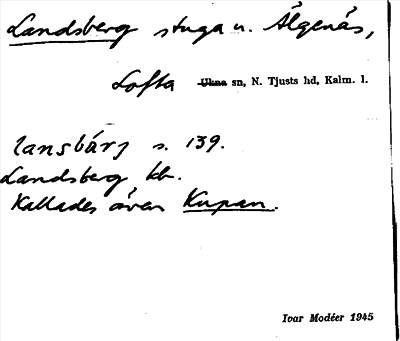 Landsberg stuga u. Älgenäs,
Lofta Ukna sn, N. Tjusts hd, Kalm. l.
lansbárj s. 139.
Landsberg kb.
Kallades även Kupan.
Ivar Modéer 1945